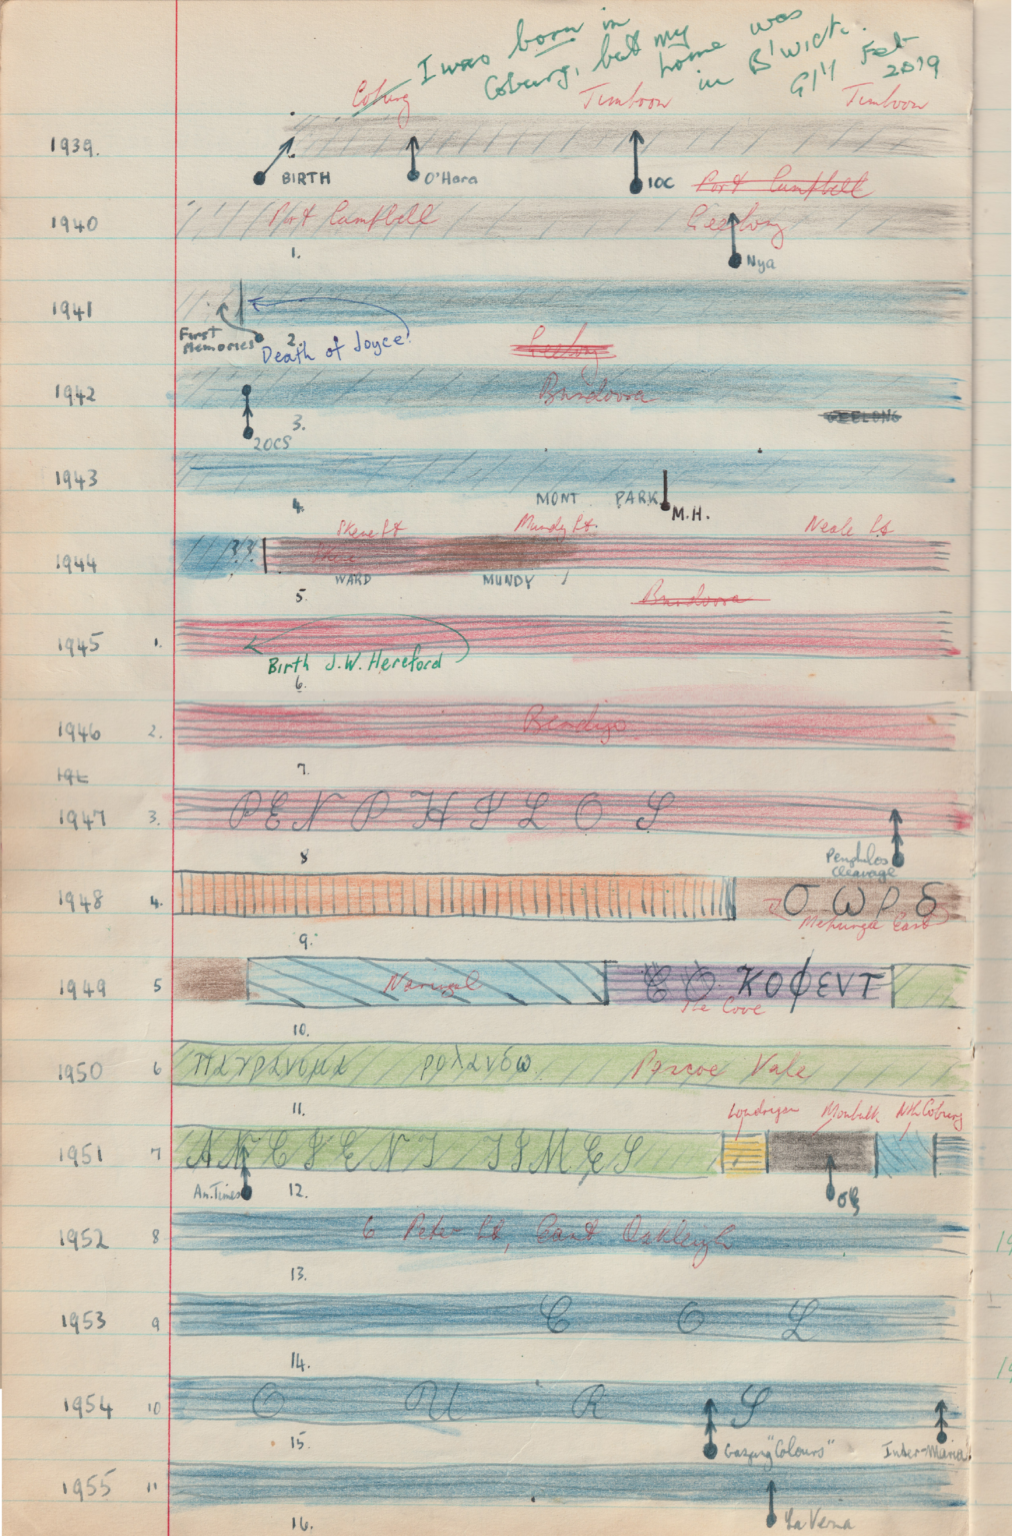 I was born in
Coburg, but my
home was
in B'wick.
G/11 Feb
2019
Coburg Timboon Timboon
1939.
BIRTH O'Hara 10C Port Campbell
1940 Port Campbell Geelong
1. Nya
1941
First Memories 2. Death of Joyce
Geelong
1942 Bundoora
GEELONG
20CS 3.
1943
4. MONT PARK M.H.
Skene St Mundy St. Neale St
1944 ??
WARD MUNDY
5. Bundoora
1945 1.
Birth J.W. Hereford
6.
1946 2. Bendigo
7.
194
1947 3. PENPHILOS
8 Penphilos Cleavage
1948 4. σωρδ
Mepunga East
9.
1949 5 Narrigal κοφεντ
The Cove
10.
1950 6 παγρανομα ρολανδω Pascoe Vale
11.
Londrigan Monbulk Nth Coburg
1951 7 ANCIENT TIMES
An. Times 12.
1952 8 6 Peter St, East Oakleigh
13.
1953 9 C O L
14.
1954 10 O U R S
15. Gazing "Colours" Inter-Murial
1955 11
16. La Verna